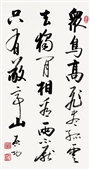 眾鳥高飛盡孤雲
去獨閒相看兩不厭
只有敬亭山 启功